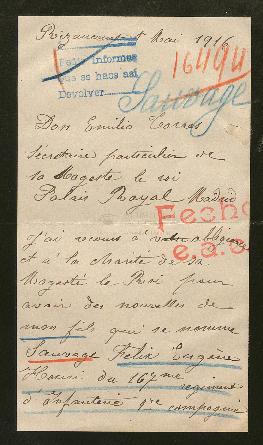 Rizaucourt Mai 1916
16494
Pedir Informes
que se haga así
Devolver
Sauvage
Don Emilio Torres
Secrétaire particulier de
sa Magesté le roi
Palais Royal Madrid
Fecho
e.a.s.
J'ai recours à votre obligeance
et à la charité de sa
Magesté le Roi pour
avoir des nouvelles de
mon fils qui se nomme
Sauvage Félix Eugène
Henri du 167me regiment
d'Infanterie 9re compagnie